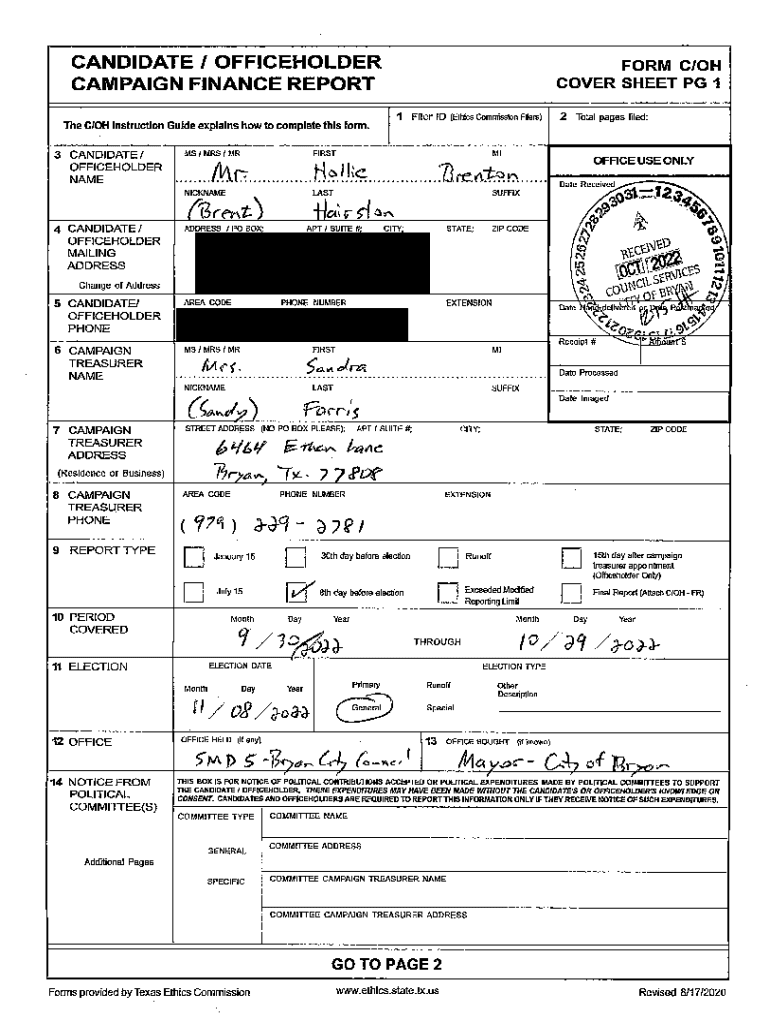 CANDIDATE / OFFICEHOLDER
CAMPAIGN FINANCE REPORT
FORM C/OH
COVER SHEET PG 1
The C/OH Instruction Guide explains how to complete this form.
1 Filer ID (Ethics Commission Filers)
2 Total pages filed:
3 CANDIDATE / OFFICEHOLDER NAME
MS / MRS / MR FIRST MI
Mr. Hollie Brenton
NICKNAME LAST SUFFIX
(Brent) Hairston
OFFICE USE ONLY
Date Received
RECEIVED
OCT 2022
COUNCIL SERVICES
CITY OF BRYAN
4 CANDIDATE / OFFICEHOLDER MAILING ADDRESS
Change of Address
ADDRESS / PO BOX; APT / SUITE #; CITY; STATE; ZIP CODE
5 CANDIDATE/ OFFICEHOLDER PHONE
AREA CODE PHONE NUMBER EXTENSION
Date Hand-delivered or Date Postmarked
Receipt # Amount $
Date Processed
Date Imaged
6 CAMPAIGN TREASURER NAME
MS / MRS / MR FIRST MI
Mrs. Sandra
NICKNAME LAST SUFFIX
(Sandy) Farris
7 CAMPAIGN TREASURER ADDRESS
(Residence or Business)
STREET ADDRESS (NO PO BOX PLEASE); APT / SUITE #; CITY; STATE; ZIP CODE
6464 Ethan Lane
Bryan, Tx. 77808
8 CAMPAIGN TREASURER PHONE
AREA CODE PHONE NUMBER EXTENSION
(979) 229-2781
9 REPORT TYPE
January 15 30th day before election Runoff 15th day after campaign treasurer appointment (Officeholder Only)
July 15 ✓ 8th day before election Exceeded Modified Reporting Limit Final Report (Attach C/OH - FR)
10 PERIOD COVERED
Month Day Year Month Day Year
9 / 30 / 2022 THROUGH 10 / 29 / 2022
11 ELECTION
ELECTION DATE ELECTION TYPE
Month Day Year
11 / 08 / 2022
Primary Runoff Other Description
General Special
12 OFFICE
OFFICE HELD (if any)
SMD 5 - Bryan City Council
13 OFFICE SOUGHT (if known)
Mayor - City of Bryan
14 NOTICE FROM POLITICAL COMMITTEE(S)
Additional Pages
THIS BOX IS FOR NOTICE OF POLITICAL CONTRIBUTIONS ACCEPTED OR POLITICAL EXPENDITURES MADE BY POLITICAL COMMITTEES TO SUPPORT
THE CANDIDATE / OFFICEHOLDER. THESE EXPENDITURES MAY HAVE BEEN MADE WITHOUT THE CANDIDATE'S OR OFFICEHOLDER'S KNOWLEDGE OR
CONSENT. CANDIDATES AND OFFICEHOLDERS ARE REQUIRED TO REPORT THIS INFORMATION ONLY IF THEY RECEIVE NOTICE OF SUCH EXPENDITURES.
COMMITTEE TYPE
GENERAL
SPECIFIC
COMMITTEE NAME
COMMITTEE ADDRESS
COMMITTEE CAMPAIGN TREASURER NAME
COMMITTEE CAMPAIGN TREASURER ADDRESS
GO TO PAGE 2
Forms provided by Texas Ethics Commission
www.ethics.state.tx.us
Revised 8/17/2020